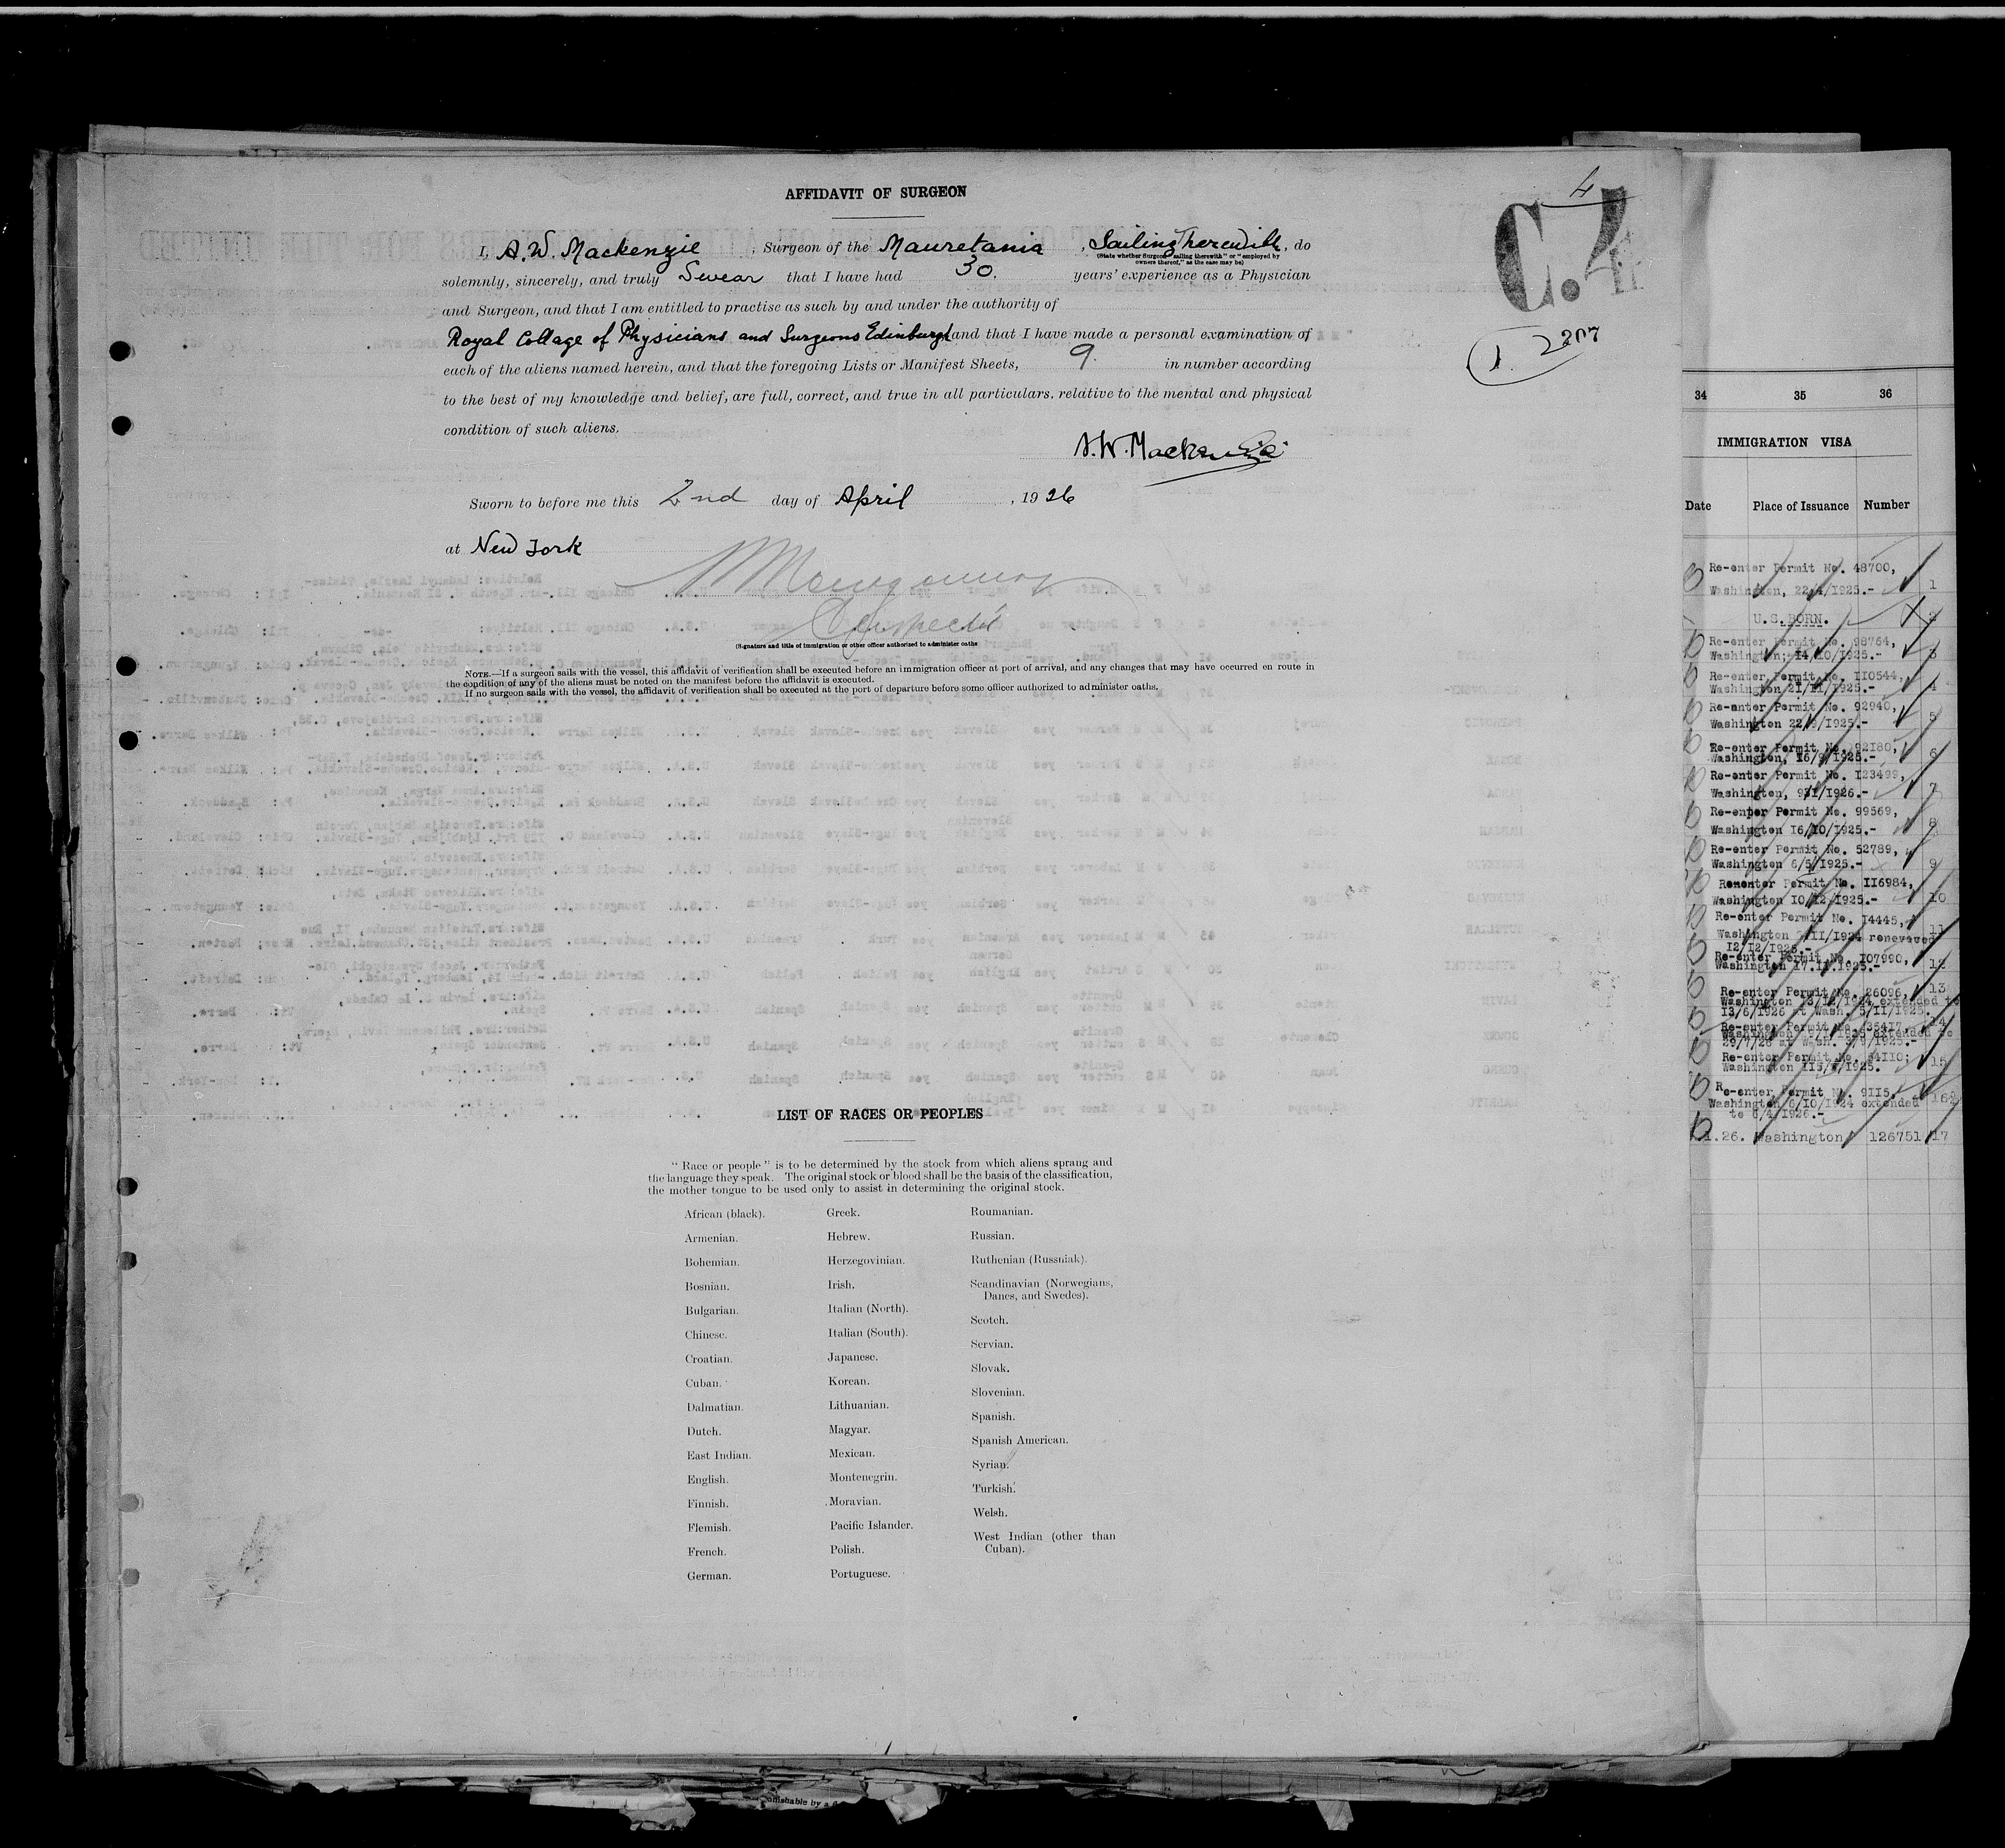 AFFIDAVIT OF SURGEON
4
C.4
I, A.W. Mackenzie , Surgeon of the Mauretania , Sailing Therewith , do
(State whether Surgeon "sailing therewith" or "employed by
owners thereof," as the case may be)
solemnly, sincerely, and truly Swear that I have had 30. years' experience as a Physician
and Surgeon, and that I am entitled to practise as such by and under the authority of
Royal Collage of Physicians and Surgeons Edinburgh and that I have made a personal examination of
each of the aliens named herein, and that the foregoing Lists or Manifest Sheets, 9. in number according
to the best of my knowledge and belief, are full, correct, and true in all particulars, relative to the mental and physical
condition of such aliens.
A.W. Mackenzie
Sworn to before me this 2nd day of April , 1926
at New York
Inspector
(Signature and title of immigration or other officer authorized to administer oaths
NOTE.—If a surgeon sails with the vessel, this affidavit of verification shall be executed before an immigration officer at port of arrival, and any changes that may have occurred en route in
the condition of any of the aliens must be noted on the manifest before the affidavit is executed.
If no surgeon sails with the vessel, the affidavit of verification shall be executed at the port of departure before some officer authorized to administer oaths.
LIST OF RACES OR PEOPLES
" Race or people " is to be determined by the stock from which aliens sprang and
the language they speak. The original stock or blood shall be the basis of the classification,
the mother tongue to be used only to assist in determining the original stock.
African (black).
Armenian.
Bohemian.
Bosnian.
Bulgarian.
Chinese.
Croatian.
Cuban.
Dalmatian.
Dutch.
East Indian.
English.
Finnish.
Flemish.
French.
German.
Greek.
Hebrew.
Herzegovinian.
Irish.
Italian (North).
Italian (South).
Japanese.
Korean.
Lithuanian.
Magyar.
Mexican.
Montenegrin.
Moravian.
Pacific Islander.
Polish.
Portuguese.
Roumanian.
Russian.
Ruthenian (Russniak).
Scandinavian (Norwegians,
Danes, and Swedes).
Scotch.
Servian.
Slovak.
Slovenian.
Spanish.
Spanish American.
Syrian.
Turkish.
Welsh.
West Indian (other than
Cuban).
34 35 36
IMMIGRATION VISA
Date Place of Issuance Number
Re-enter Permit No. 48700,
Washington, 22/4/1925.- 1
U.S.BORN. 2
Re-enter Permit No. 98764,
Washington, 14/10/1925.- 3
Re-enter Permit No. 110544,
Washington 21/11/1925.- 4
Re-enter Permit No. 92940,
Washington 22/9/1925.- 5
Re-enter Permit No. 92180, 6
Washington, 16/9/1925.-
Re-enter Permit No. 123499,
Washington, 9/1/1926.- 7
Re-enter Permit No. 99569,
Washington 16/10/1925.- 8
Re-enter Permit No. 52789,
Washington 6/5/1925.- 9
Reenter Permit No. 116984,
Washington 10/12/1925.- 10
Re-enter Permit No. 14445,
Washington /11/1924 renewed 11
12/12/1925.-
Re-enter Permit No. 107990,
Washington 17.11.1925.- 12
Re-enter Permit No. 26096, 13
Washington 13/12/1924 extended to
13/6/1926 at Wash. 5/11/1925.
Re-enter Permit No. 35417, 14
Washington extended to
29/7/26 at Wash.
Re-enter Permit No. 64110;
Washington 15
Re-enter Permit No. 9115,
Washington 6/10/1924 extended 16
to 6/4/1926.-
1.26. Washington 126751 17